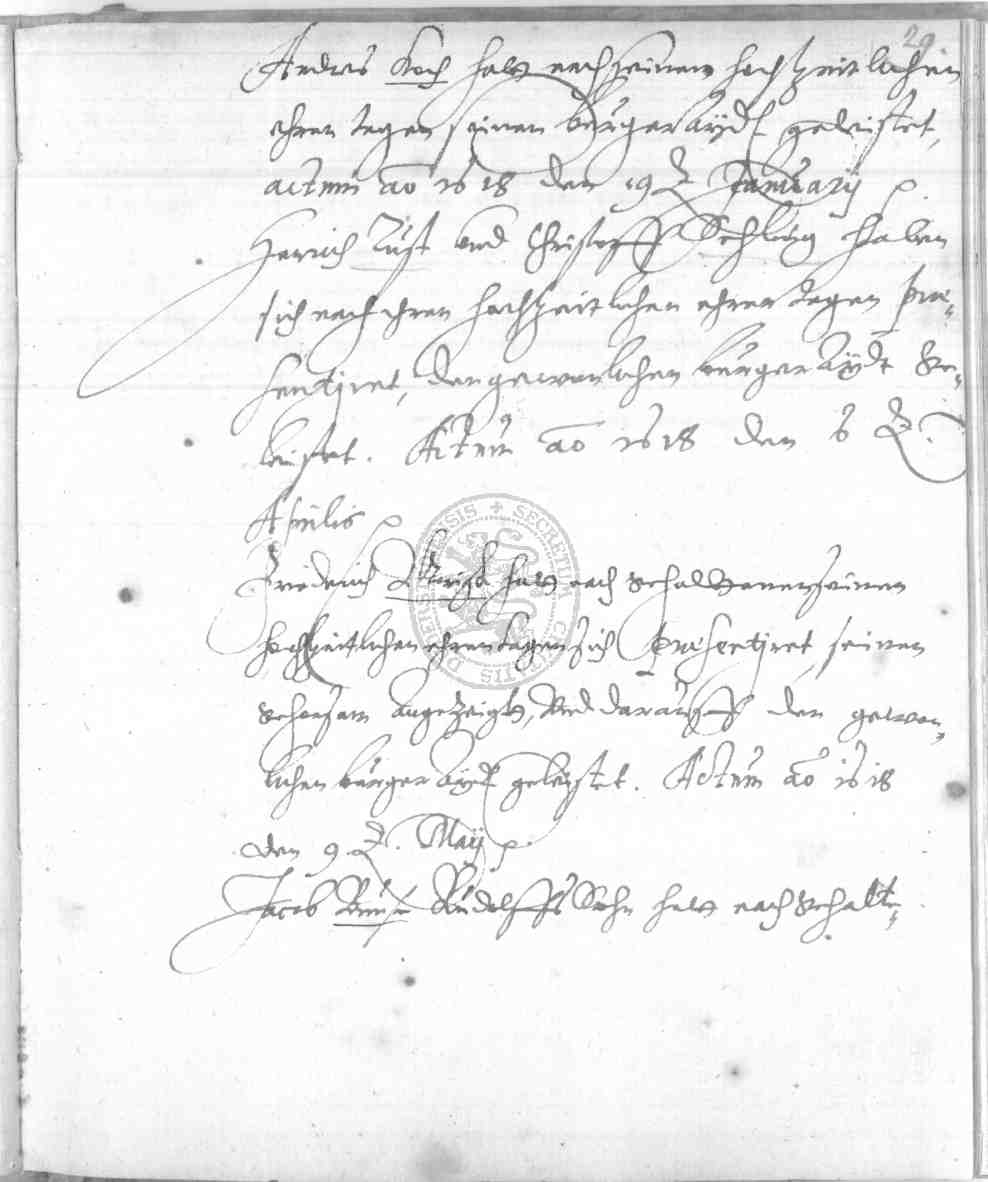 29
Andres Koch hatt nach seinem hochzeitlichen
ehren tagen seinen bürger aÿdt geleistet,
actum ao 1618 den 19 Januarij
Henrich Lust und Christoff Schlaug haben
sich nach ihren hochzeitlichen ehren tagen pre„
sentiret, den gewonlichen bürger aÿdt ge„
leistet. Actum ao 1618 den 6
Aprilis
Friedrich hatt nach gehaltenen seinen
hochzeitlichen ehrentagen sich presentiret seinen
gehorsam angezeigt, und darauff den gewon„
lichen bürger aÿdt geleistet. Actum ao 1618
den 9 Maij
Jacob Rudolffs Sohn hatt nach gehalte„
SECRETUM CIVITATIS